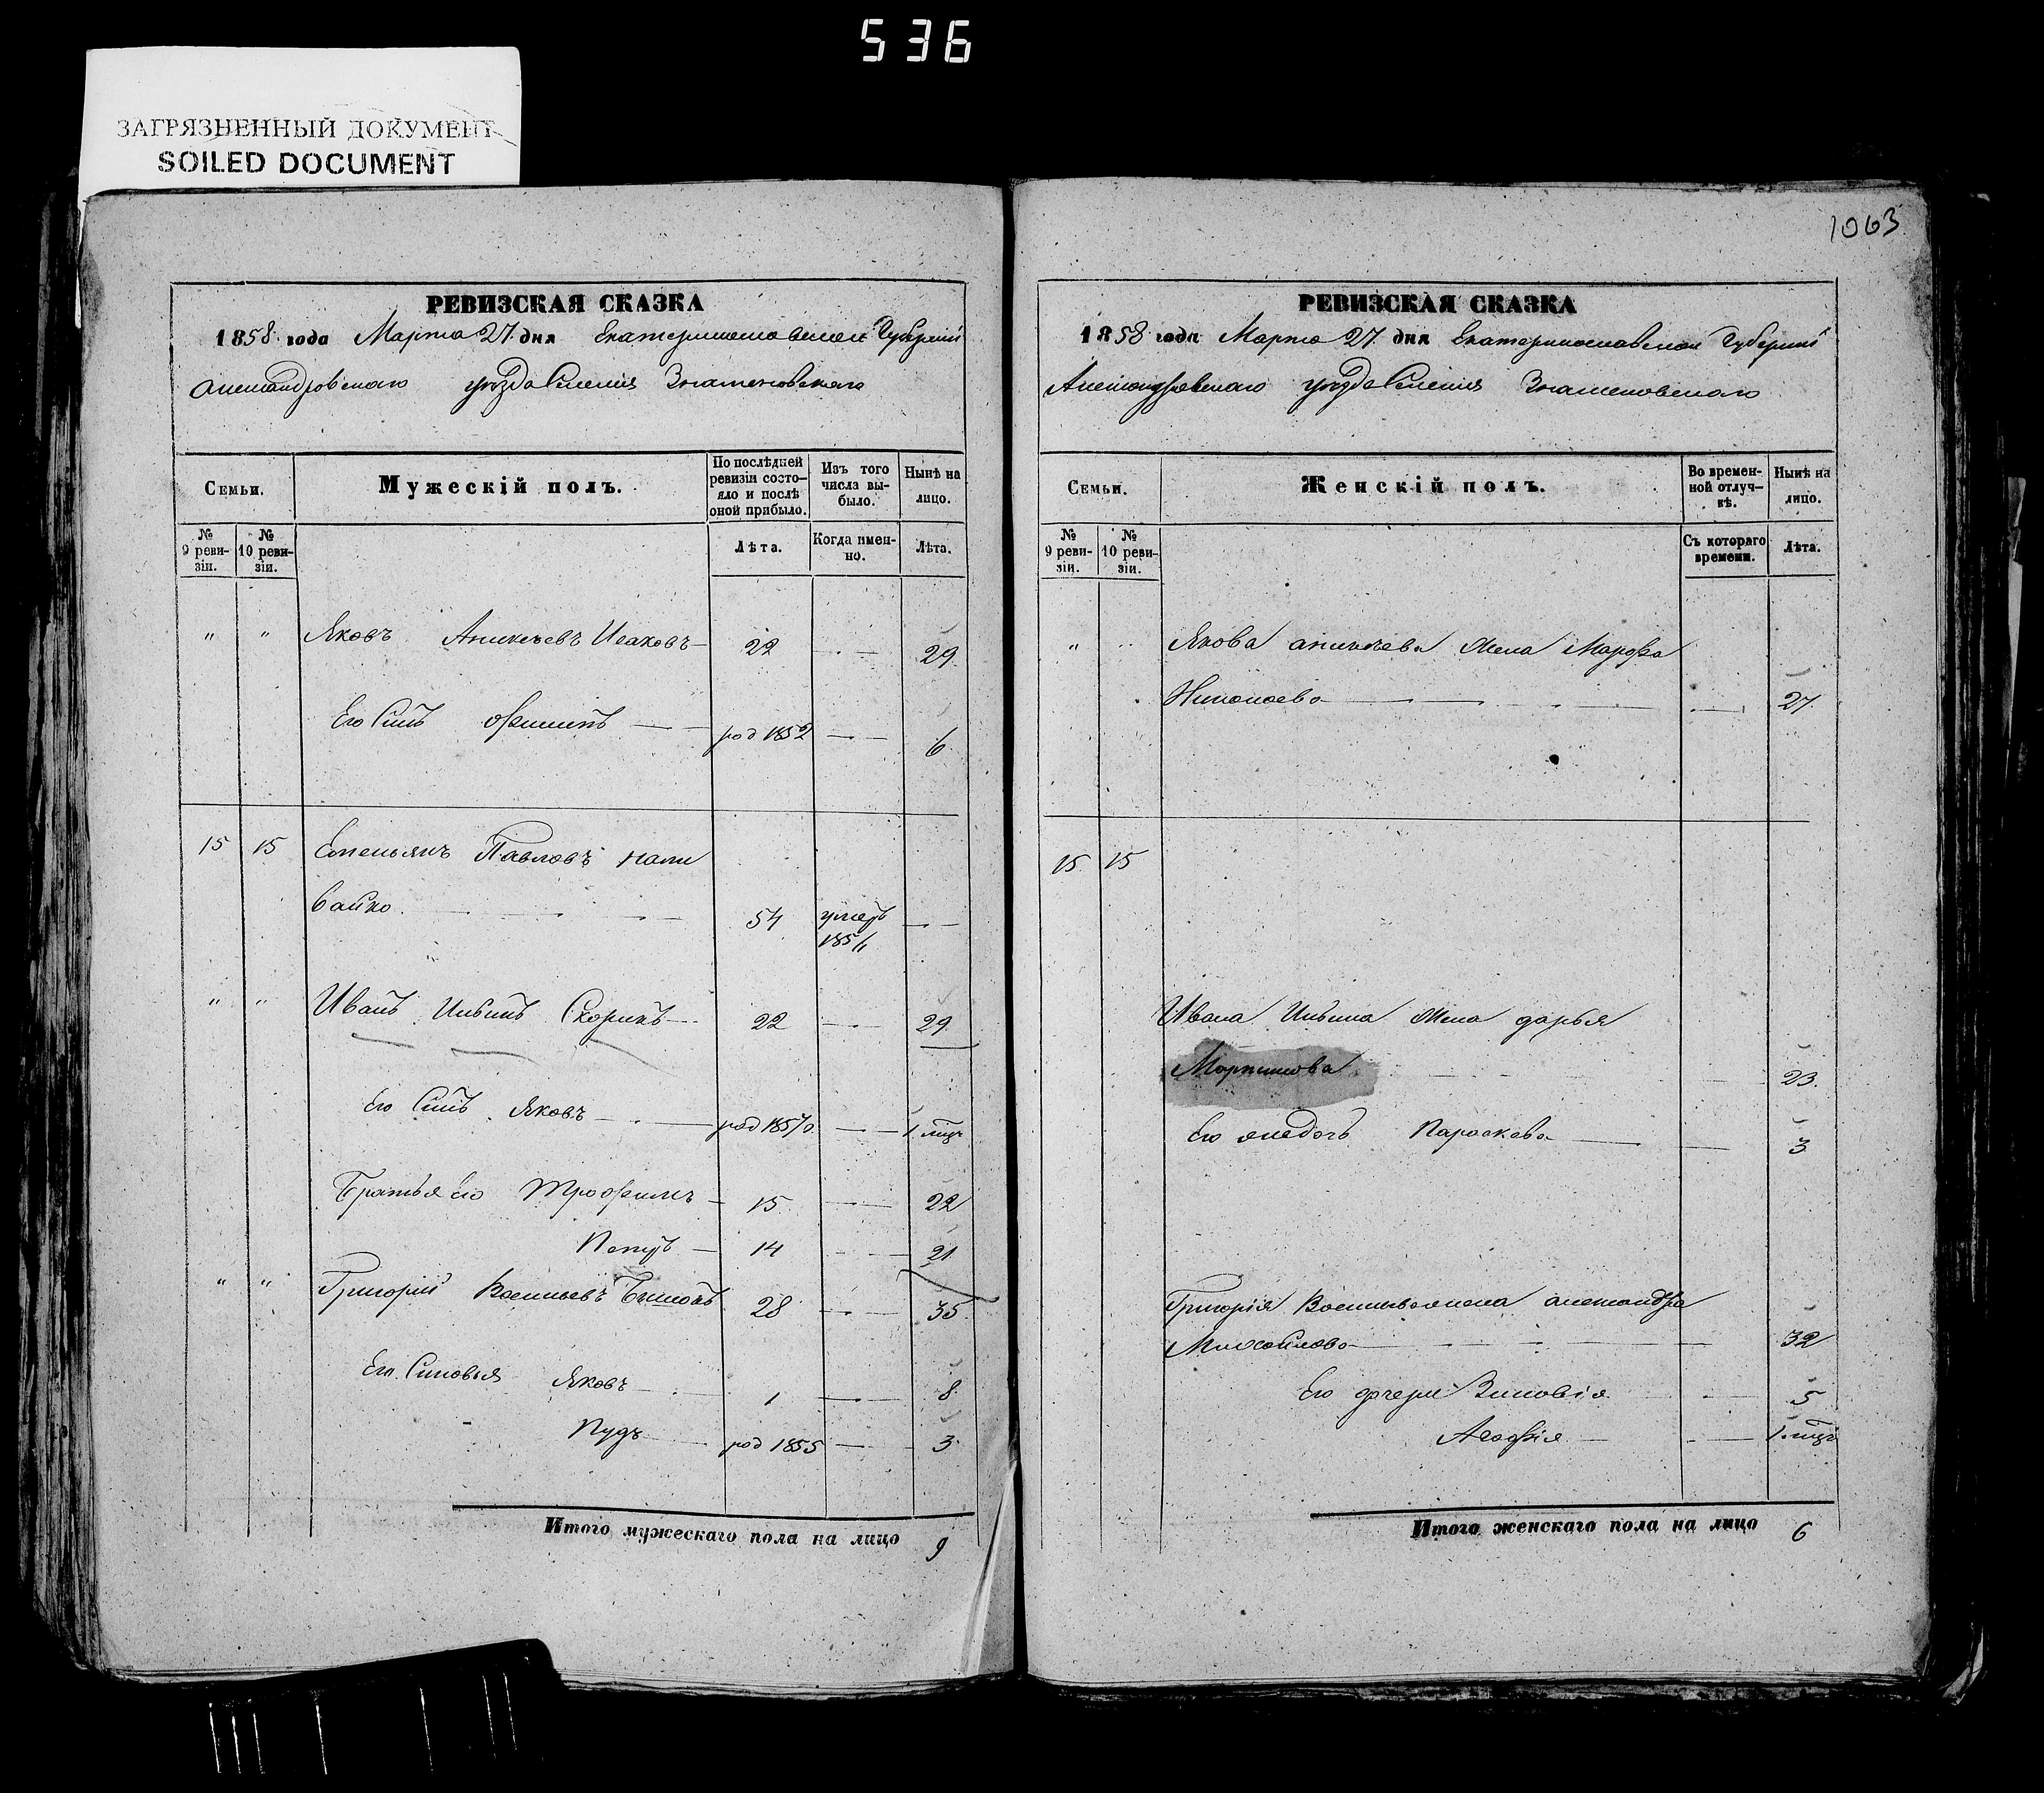 536
ЗАГРЯЗНЕННЫЙ ДОКУМЕНТ
SOILED DOCUMENT
РЕВИЗСКАЯ СКАЗКА
1858 года Марта 27 дня Екатеринославской Губерніи
Александровскаго уезда Селенія Знаменовскаго
Семьи.
Мужескій полъ.
По послѣдней ревизіи состояло и послѣ оной прибыло.
Изъ того числа выбыло.
Нынѣ на лицо.
№ 9 ревизіи.
№ 10 ревизіи.
Лѣта.
Когда именно.
Лѣта.
" " Яковъ Аникѣевъ Исаковъ 22 29
Его Сынъ Филипъ род 1852 6
15 15 Емельянъ Павловъ Нали
вайко 54 умеръ
Иванъ Ильинъ Скорикъ 22 29
Его Сынъ Яковъ 1 мцъ
Братья его Трофимъ 15 22
Петръ 14 21
" " Григорій Васильевъ 28 35
Его Сыновья Яковъ 1 8
Пудъ род 1855 3
Итого мужескаго пола на лицо 9
1063
РЕВИЗСКАЯ СКАЗКА
1858 года Марта 27 дня Екатеринославской Губерніи
Александровскаго уезда Селенія Знаменовскаго
Семьи.
Женскій полъ.
Во временной отлучкѣ.
Нынѣ на лицо.
№ 9 ревизіи.
№ 10 ревизіи.
Съ котораго времени.
Лѣта.
" " Якова Аникѣева жена Марфа
Николаева 27
15 15
Ивана Ильина жена дарья
Мартинова 23
Его дочь Параскева 3
Григорія Васильева жена александра
Михайлова 32
Его дочери Зиновія 5
Агафія 1 мцъ
Итого женскаго пола на лицо 6